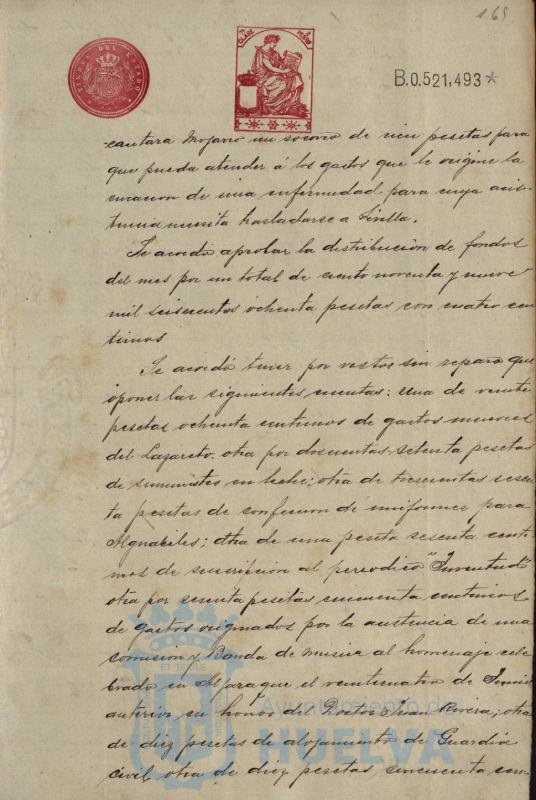 165
TIMBRE DEL ESTADO
CLASE
B.0.521,493*
cantara Mojarro un socorro de cien pesetas para
que pueda atender á los gastos que le origine la
curacion de una enfermedad para cuya asis-
tencia necesita trasladarse a Sevilla.
Se acordó aprobar la distribucion de fondos
del mes por un total de ciento noventa y nueve
mil seiscientos ochenta pesetas con cuatro cen
timos
Se acordó tener por vistos sin reparo que
oponer las siguientes cuentas: una de veinte
pesetas ochenta centimos de gastos menores
del Lazareto. otra por doscientas setenta pesetas
de suministro en leche; otra de trescientas sesen
ta pesetas de confeccion de uniformes para
Alguaciles; otra de una peseta sesenta centi-
mos de suscripcion al periodico "Juventud"
otra por sesenta pesetas cincuenta centimos
de gastos originados por la asistencia de una
Comision y Banda de musica al homenaje cele
brado en el veinticuatro de Junio
anterior en honor del Doctor Juan Rivera; otra
de diez pesetas de alojamiento de Guardia
civil otra de diez pesetas cincuenta cen-
Ayuntamiento de
HUELVA